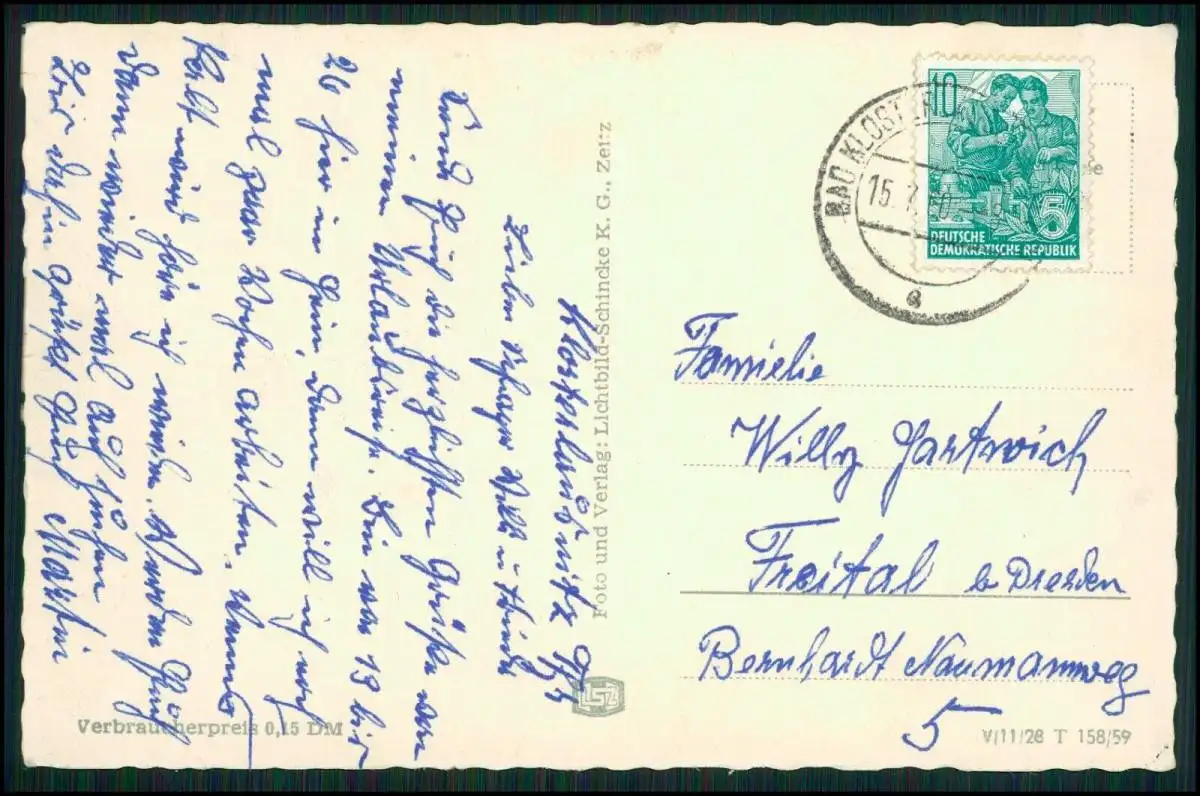 Klosterlausnitz
Lieber Schager Willi u Kinder
Send Euch die herzlichsten Grüße von
meiner Urlaubreise. Bin von 13 bis
26 hier im Heim, dann will ich noch
mal zwar Wochen arbeiten, wenns
kalt wird höre ich wieder. Werde Euch
dann wieder mal aufsuchen
Bis dahin grüßt Euch Martin
Foto und Verlag: Lichtbild-Schincke K. G., Zeitz
LSZ
Verbraucherpreis 0,15 DM
BAD KLOSTER
15.7.60
a
10
5
DEUTSCHE
DEMOKRATISCHE REPUBLIK
Familie
Willy Hartwich
Freital b Dresden
Bernhardt Naumannweg
5
V/11/28 T 158/59